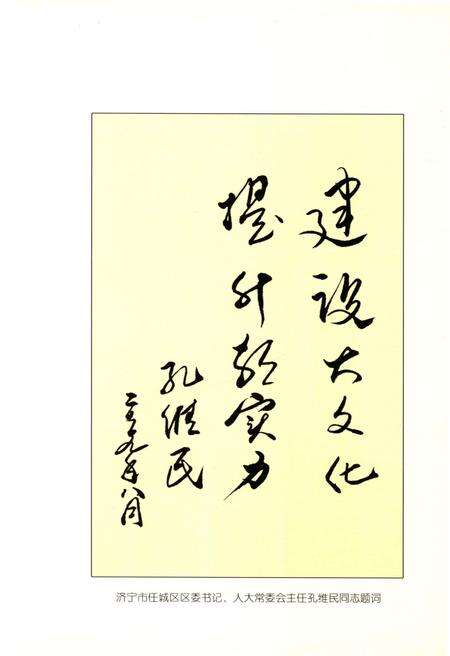 建设大文化
提升软实力
孔维民
二〇〇九年八月
济宁市任城区区委书记、人大常委会主任孔维民同志题词